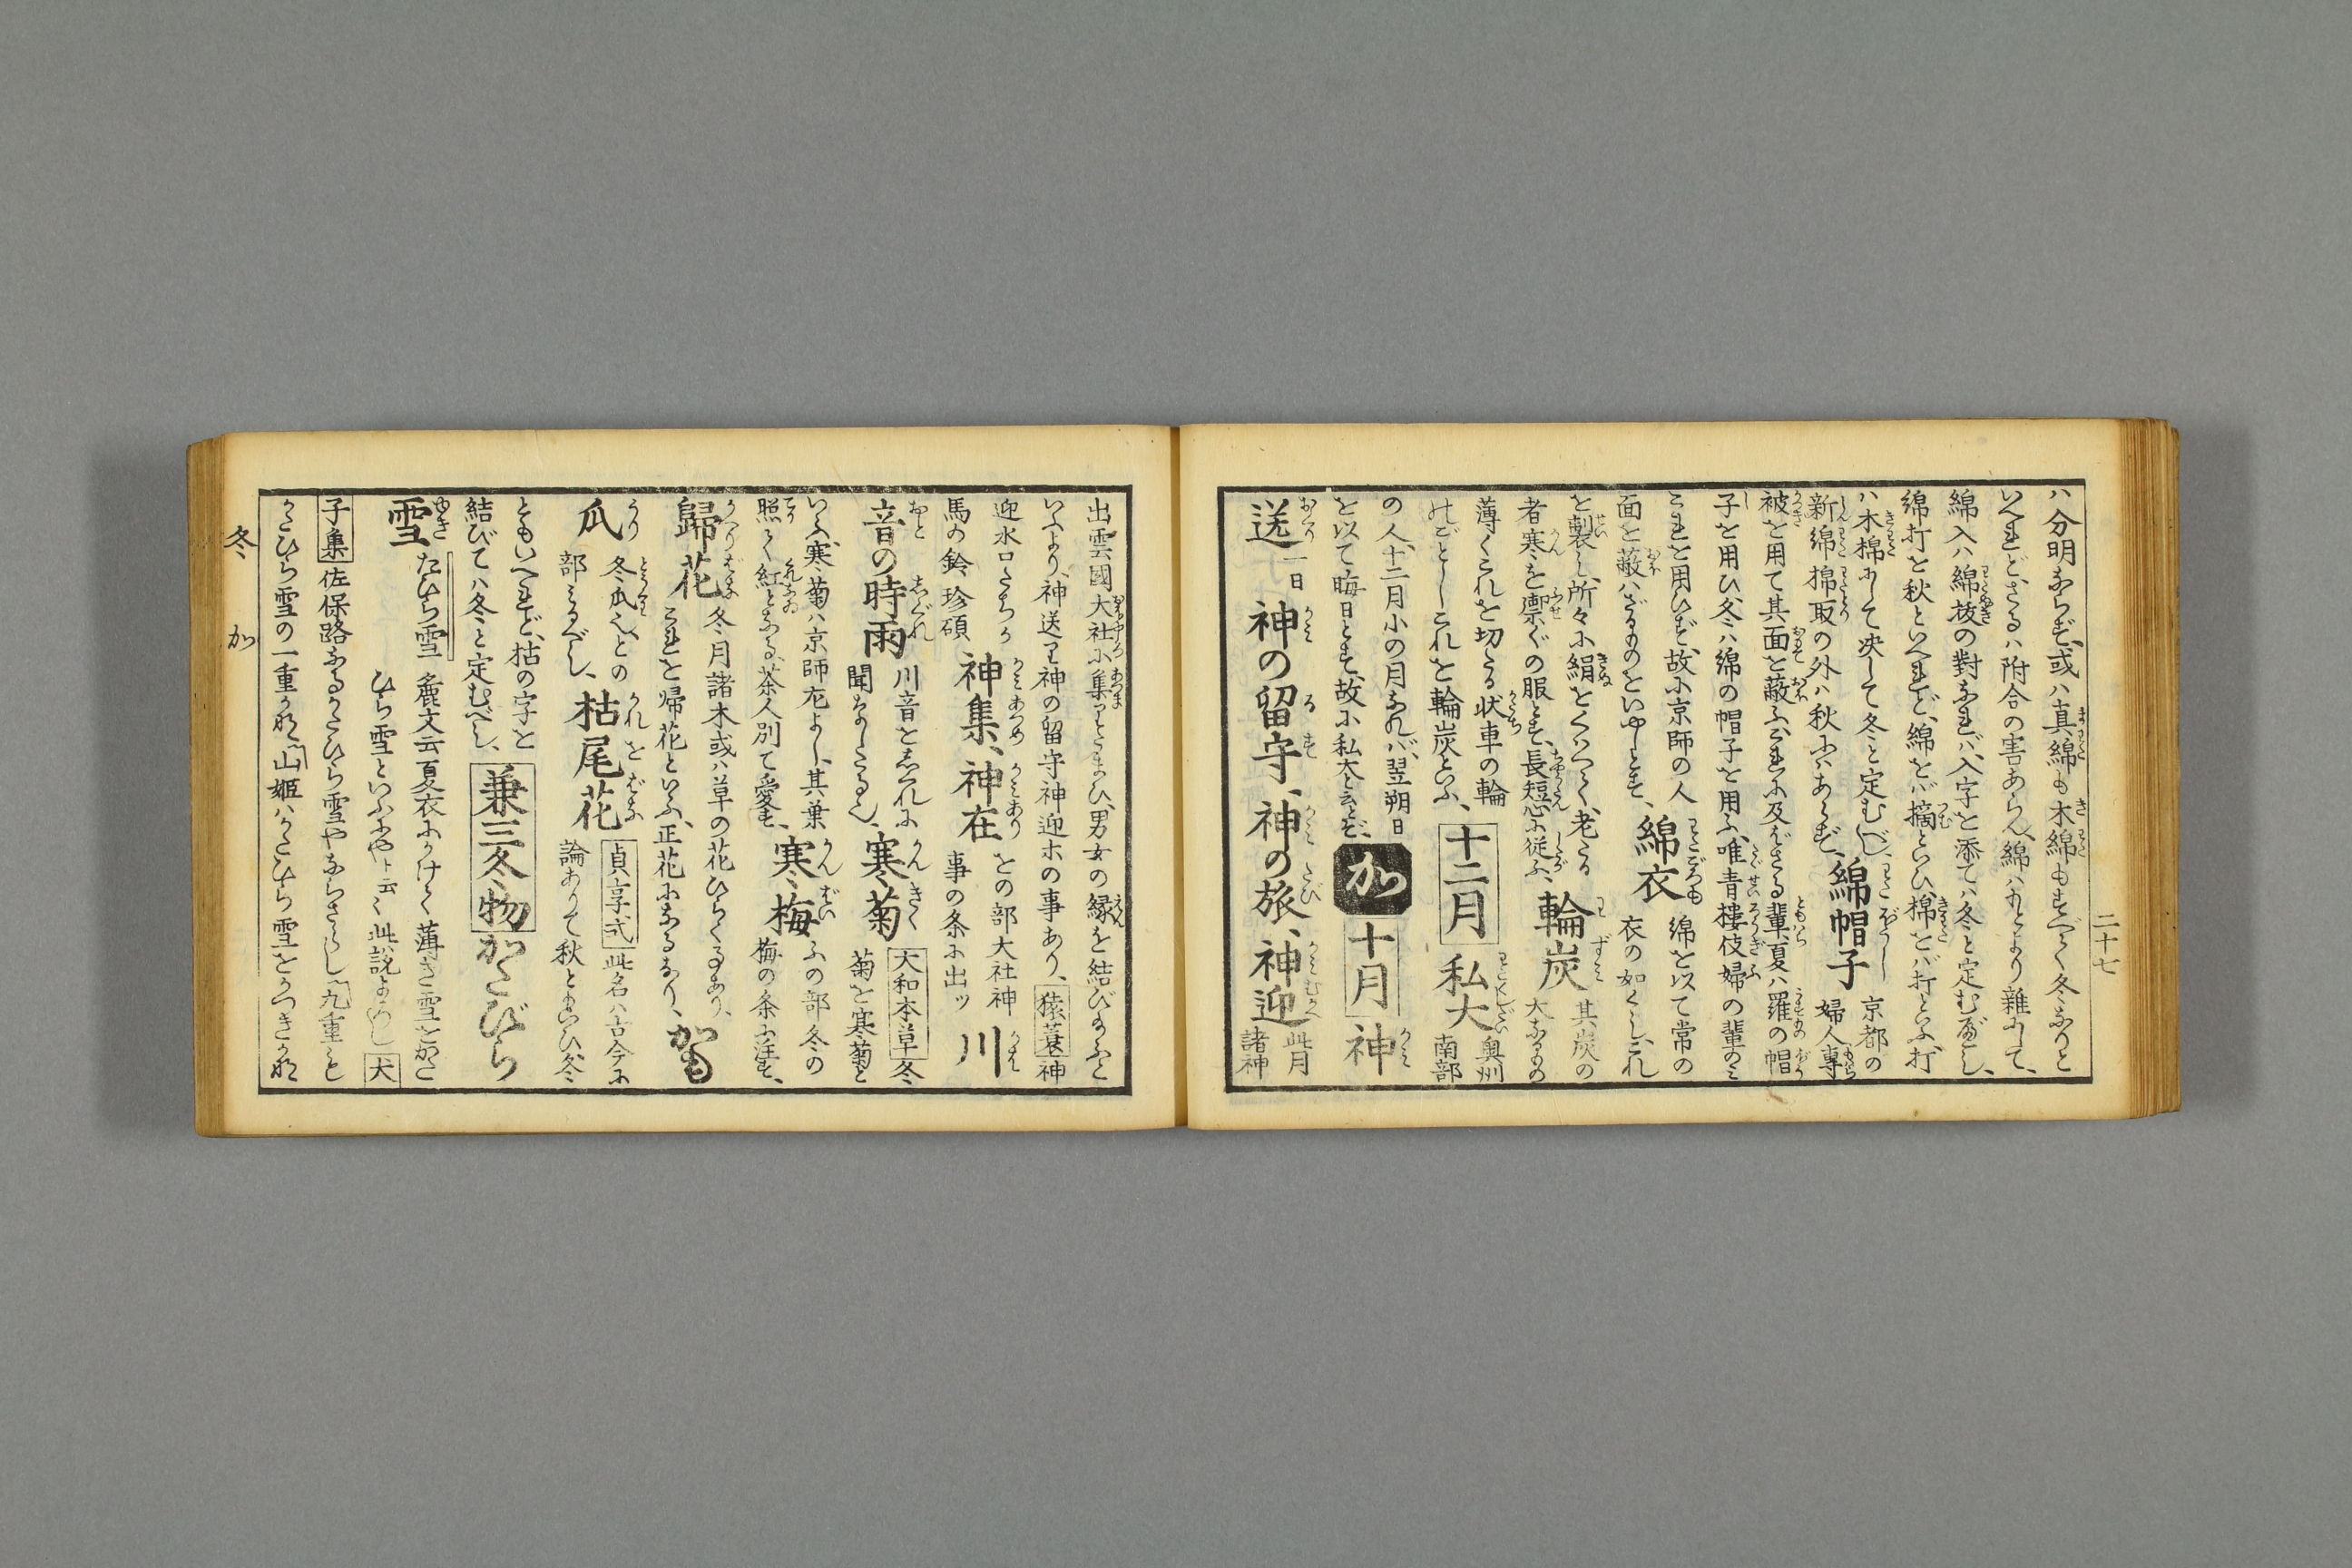 二十七
ハ分明ならず、或ハ真綿も木綿もすべて冬なりと
いへれど、さるハ附合の害あらん、綿ハもとより雑にして、
綿入ハ綿抜の對なれバ、入字を添てハ冬と定むべし、
綿打を秋といへれど、綿をバ摘といひ、棉をバ打といふ、打
ハ木棉にして決して冬と定むべし、
新綿棉取の外ハ秋にハあらず、
綿帽子
京都の
婦人專
被を用て其面を蔽ふ、これに及ばざる輩、夏ハ羅の帽
子を用ひ、冬ハ綿の帽子を用ふ、唯青樓伎婦の輩のミ
これを用ひず、故に京師の人
面を蔽ハざるものをいやしとす、
綿衣
綿を以て常の
衣の如くし、これ
を製し、所々に絹をくゝつく、老たる
者寒を禦ぐの服とす、長短心に従ふ、
輪炭
其炭の
大なるもの
薄くこれを切たる状車の輪
のごとし、これを輪炭といふ、
十二月
私大
奥州
南部
の人、十二月小の月なれバ、翌朔日
を以て晦日とす、故に私大と云とぞ、
か
十月
神
送
一日
神の留守、神の旅、神迎
此月
諸神
出雲國大社に集りたまひ、男女の縁を結びたまふと
いふより、神送り神の留守神迎ホの事あり、猿蓑神
迎水口たちか
馬の鈴 珍碩
神集、神在
との部大社神
事の条に出ッ
川
音の時雨
川音をしぐれに
聞なしたる也、
寒菊
大和本草冬
菊を寒菊と
いふ、寒菊ハ京師尤よし、其葉
照く紅となる、茶人別て愛す、
寒梅
ふの部冬の
梅の条に注す、
歸花
冬月諸木或ハ草の花ひらくるあり、
これを帰花といふ、正花になるなり、
かも
瓜
冬瓜也、との
部ミるべし、
枯尾花
貞享式此名ハ古今に
論ありて秋ともいひ、冬
ともいへれど、枯の字を
結びてハ冬と定むべし、
兼三冬物
かたびら
雪
たひら雪
麁文云夏衣にかけて薄き雪をかた
ひら雪といふにやト云々此説よろし犬
子集佐保路なるかたひら雪やならさらし九重と
かたひら雪の一重かな山姫ハかたひら雪をかつきかな
冬 か